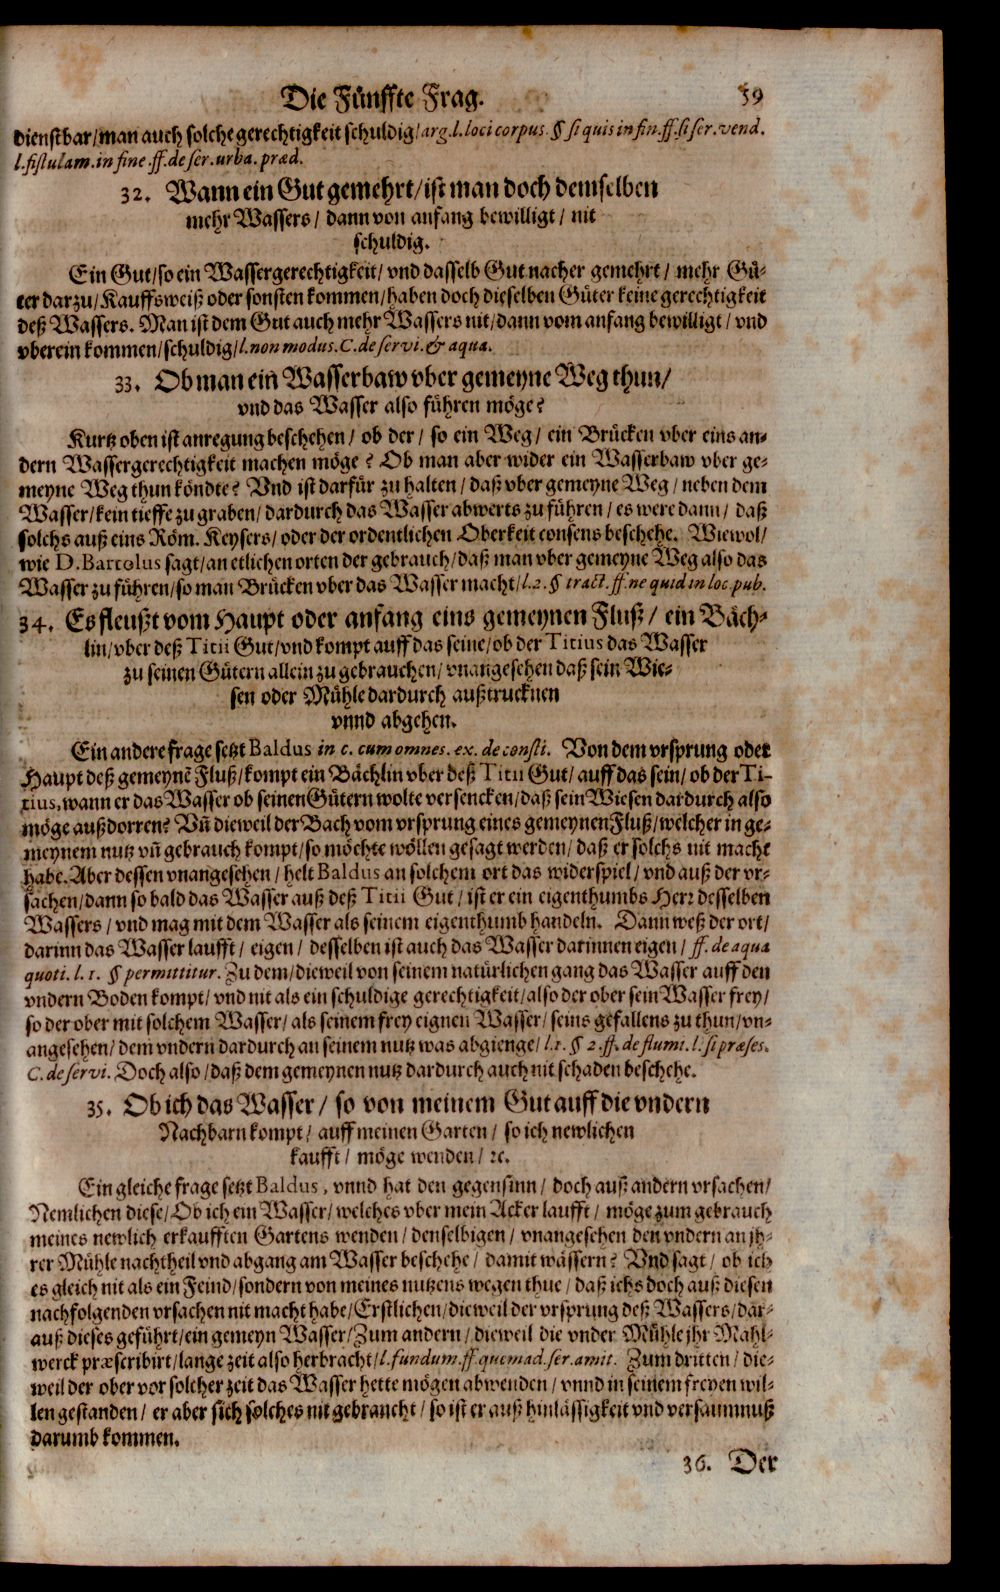 Die Fünffte Frag. 59
dienstbar/man auch solche gerechtigkeit schuldig/arg.l.loci corpus.§ si quis in fin.ff.si ser.vend.
l.fistulam.in fine.ff.de ser.urba.præd.
32. Wann ein Gut gemehrt/ist man doch demselben
mehr Wassers/ dann von anfang bewilligt/ nit
schuldig.
Ein Gut/so ein Wassergerechtigkeit/ vnd dasselb Gut nacher gemehrt/ mehr Gü-
ter darzu/Kauffsweiß oder sonsten kommen/haben doch dieselben Güter keine gerechtigkeit
deß Wassers. Man ist dem Gut auch mehr Wassers nit/dann vom anfang bewilligt/ vnd
vberein kommen/schuldig/l.non modus.C.de servi.& aqua.
33. Ob man ein Wasserbaw vber gemeyne Weg thun/
vnd das Wasser also führen möge?
Kurtz oben ist anregung beschehen/ ob der/ so ein Weg/ ein Brücken vber eins an-
dern Wassergerechtigkeit machen möge? Ob man aber wider ein Wasserbaw vber ge-
meyne Weg thun köndte? Vnd ist darfür zu halten/ daß vber gemeyne Weg/ neben dem
Wasser/kein tieffe zu graben/ dardurch das Wasser abwerts zu führen/ es were dann/ daß
solchs auß eins Röm. Keysers/ oder der ordentlichen Oberkeit consens beschehe. Wiewol/
wie D.Bartolus sagt/an etlichen orten der gebrauch/daß man vber gemeyne Weg also das
Wasser zu führen/so man Brücken vber das Wasser macht/l.2.§ tract.ff.ne quid in loc.pub.
34. Es fleußt vom Haupt oder anfang eins gemeynen Fluß/ ein Bäch-
lin/vber deß Titii Gut/vnd kompt auff das seine/ob der Titius das Wasser
zu seinen Gütern allein zu gebrauchen/vnangesehen daß sein Wie-
sen oder Mühle dardurch außtrucknen
vnnd abgehen.
Ein andere frage setzt Baldus in c. cum omnes. ex. de consti. Von dem vrsprung oder
Haupt deß gemeynē Fluß/kompt ein Bächlin vber deß Titii Gut/ auff das sein/ ob der Ti-
tius,wann er das Wasser ob seinen Gütern wolte versencken/daß sein Wiesen dardurch also
möge außdorren? Vñ dieweil der Bach vom vrsprung eines gemeynen Fluß/welcher in ge-
meynem nutz vñ gebrauch kompt/so möchte wöllen gesagt werden/ daß er solchs nit macht
habe. Aber dessen vnangesehen/ helt Baldus an solchem ort das widerspiel/ vnd auß der vr-
sachen/dann so bald das Wasser auß deß Titii Gut/ ist er ein eigenthumbs Herr desselben
Wassers/ vnd mag mit dem Wasser als seinem eigenthumb handeln. Dann weß der ort/
darinn das Wasser laufft/ eigen/ desselben ist auch das Wasser darinnen eigen/ ff.de aqua
quoti.l.1.§ permittitur. Zu dem/dieweil von seinem natürlichen gang das Wasser auff den
vndern Boden kompt/ vnd nit als ein schuldige gerechtigkeit/also der ober sein Wasser frey/
so der ober mit solchem Wasser/ als seinem frey eignen Wasser/ seins gefallens zu thun/vn-
angesehen/ dem vndern dardurch an seinem nutz was abgienge/ l.1.§ 2.ff.de flumi.l.si præses.
C.de servi. Doch also/daß dem gemeynen nutz dardurch auch nit schaden beschehe.
35. Ob ich das Wasser/ so von meinem Gut auff die vndern
Nachbarn kompt/ auff meinen Garten/ so ich newlichen
kaufft/ möge wenden/ ꝛc.
Ein gleiche frage setzt Baldus, vnnd hat den gegensinn/ doch auß andern vrsachen/
Nemlichen diese/ Ob ich ein Wasser/ welches vber mein Acker laufft/ möge zum gebrauch
meines newlich erkaufften Gartens wenden/ denselbigen/ vnangesehen den vndern an jh-
rer Mühle nachtheil vnd abgang am Wasser beschehe/ damit wässern? Vnd sagt/ ob ich
es gleich nit als ein Feind/sondern von meines nutzens wegen thue/ daß ichs doch auß diesen
nachfolgenden vrsachen nit macht habe/Erstlichen/dieweil der vrsprung deß Wassers/dar-
auß dieses geführt/ein gemeyn Wasser/Zum andern/ dieweil die vnder Mühle jhr Mahl-
werck præscribirt/lange zeit also herbracht/l.fundum.ff.quemad.ser.amit. Zum dritten/ die-
weil der ober vor solcher zeit das Wasser hette mögen abwenden/ vnnd in seinem freyen wil-
len gestanden/ er aber sich solches nit gebraucht/ so ist er auß hinlässigkeit vnd versaumnuß
darumb kommen.
36. Der